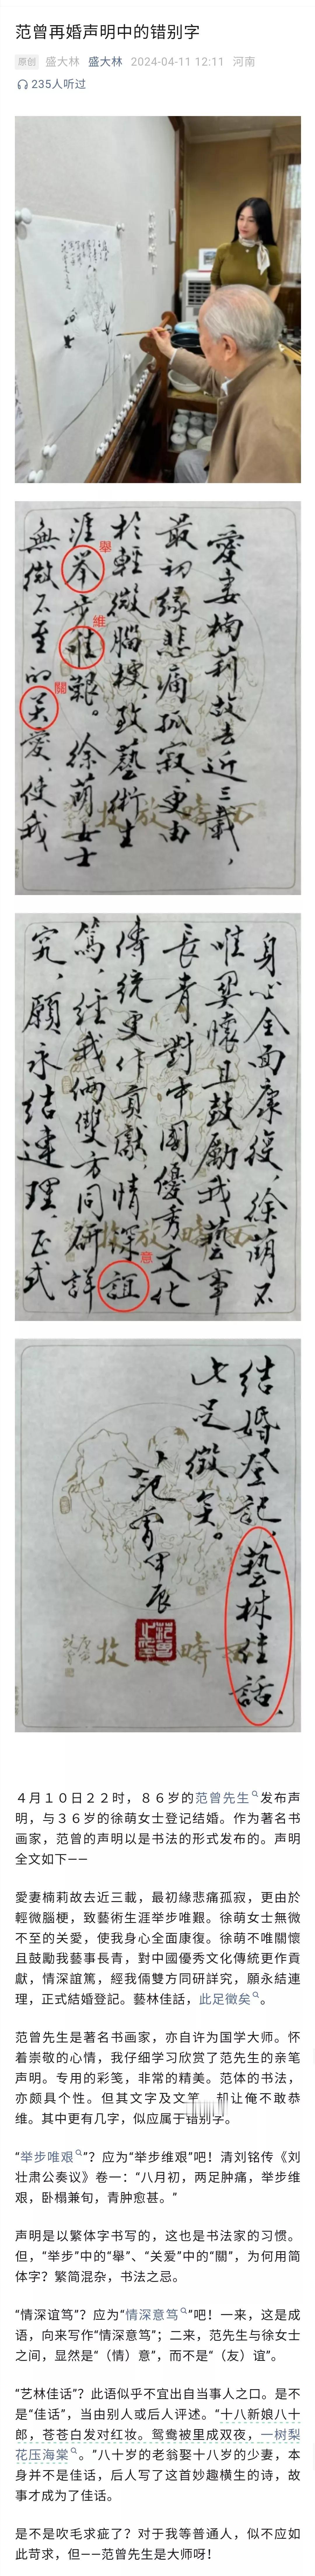 范曾再婚声明中的错别字
原创 盛大林 盛大林 2024-04-11 12:11 河南
235人听过
愛妻楠莉故去近三載，
最初缘悲痛孤寂，更由
於輕微腦梗，致藝術生
涯举步唯艱。徐萌女士
無微不至的关愛，使我
舉
維
關
身心全面康復，徐萌不
唯関懷且鼓勵我藝事
長青，對中國優秀文化
傳統更作貢獻，情深誼
篤，經我倆雙方同研詳
究，願永結連理，正式
意
結婚登記，藝林佳話，
此足徵矣。
范曾甲辰
４月１０日２２时，８６岁的范曾先生发布声
明，与３６岁的徐萌女士登记结婚。作为著名书
画家，范曾的声明以是书法的形式发布的。声明
全文如下——
愛妻楠莉故去近三載，最初緣悲痛孤寂，更由於
輕微腦梗，致藝術生涯举步唯艱。徐萌女士無微
不至的关愛，使我身心全面康復。徐萌不唯關懷
且鼓勵我藝事長青，對中國優秀文化傳統更作貢
獻，情深誼篤，經我倆雙方同研詳究，願永結連
理，正式結婚登記。藝林佳話，此足徵矣。
范曾先生是著名书画家，亦自许为国学大师。怀
着崇敬的心情，我仔细学习欣赏了范先生的亲笔
声明。专用的彩笺，非常的精美。范体的书法，
亦颇具个性。但其文字及文笔，却让俺不敢恭
维。其中更有几字，似应属于错别字。
“举步唯艰”？应为“举步维艰”吧！清刘铭传《刘
壮肃公奏议》卷一：“八月初，两足肿痛，举步维
艰，卧榻兼旬，青肿愈甚。”
声明是以繁体字书写的，这也是书法家的习惯。
但，“举步”中的“舉”、“关爱”中的“關”，为何用简
体字？繁简混杂，书法之忌。
“情深谊笃”？应为“情深意笃”吧！一来，这是成
语，向来写作“情深意笃”；二来，范先生与徐女士
之间，显然是“（情）意”，而不是“（友）谊”。
“艺林佳话”？此语似乎不宜出自当事人之口。是不
是“佳话”，当由别人或后人评述。“十八新娘八十
郎，苍苍白发对红妆。鸳鸯被里成双夜，一树梨
花压海棠。”八十岁的老翁娶十八岁的少妻，本
身并不是佳话，后人写了这首妙趣横生的诗，故
事才成为了佳话。
是不是吹毛求疵了？对于我等普通人，似不应如
此苛求，但——范曾先生是大师呀！